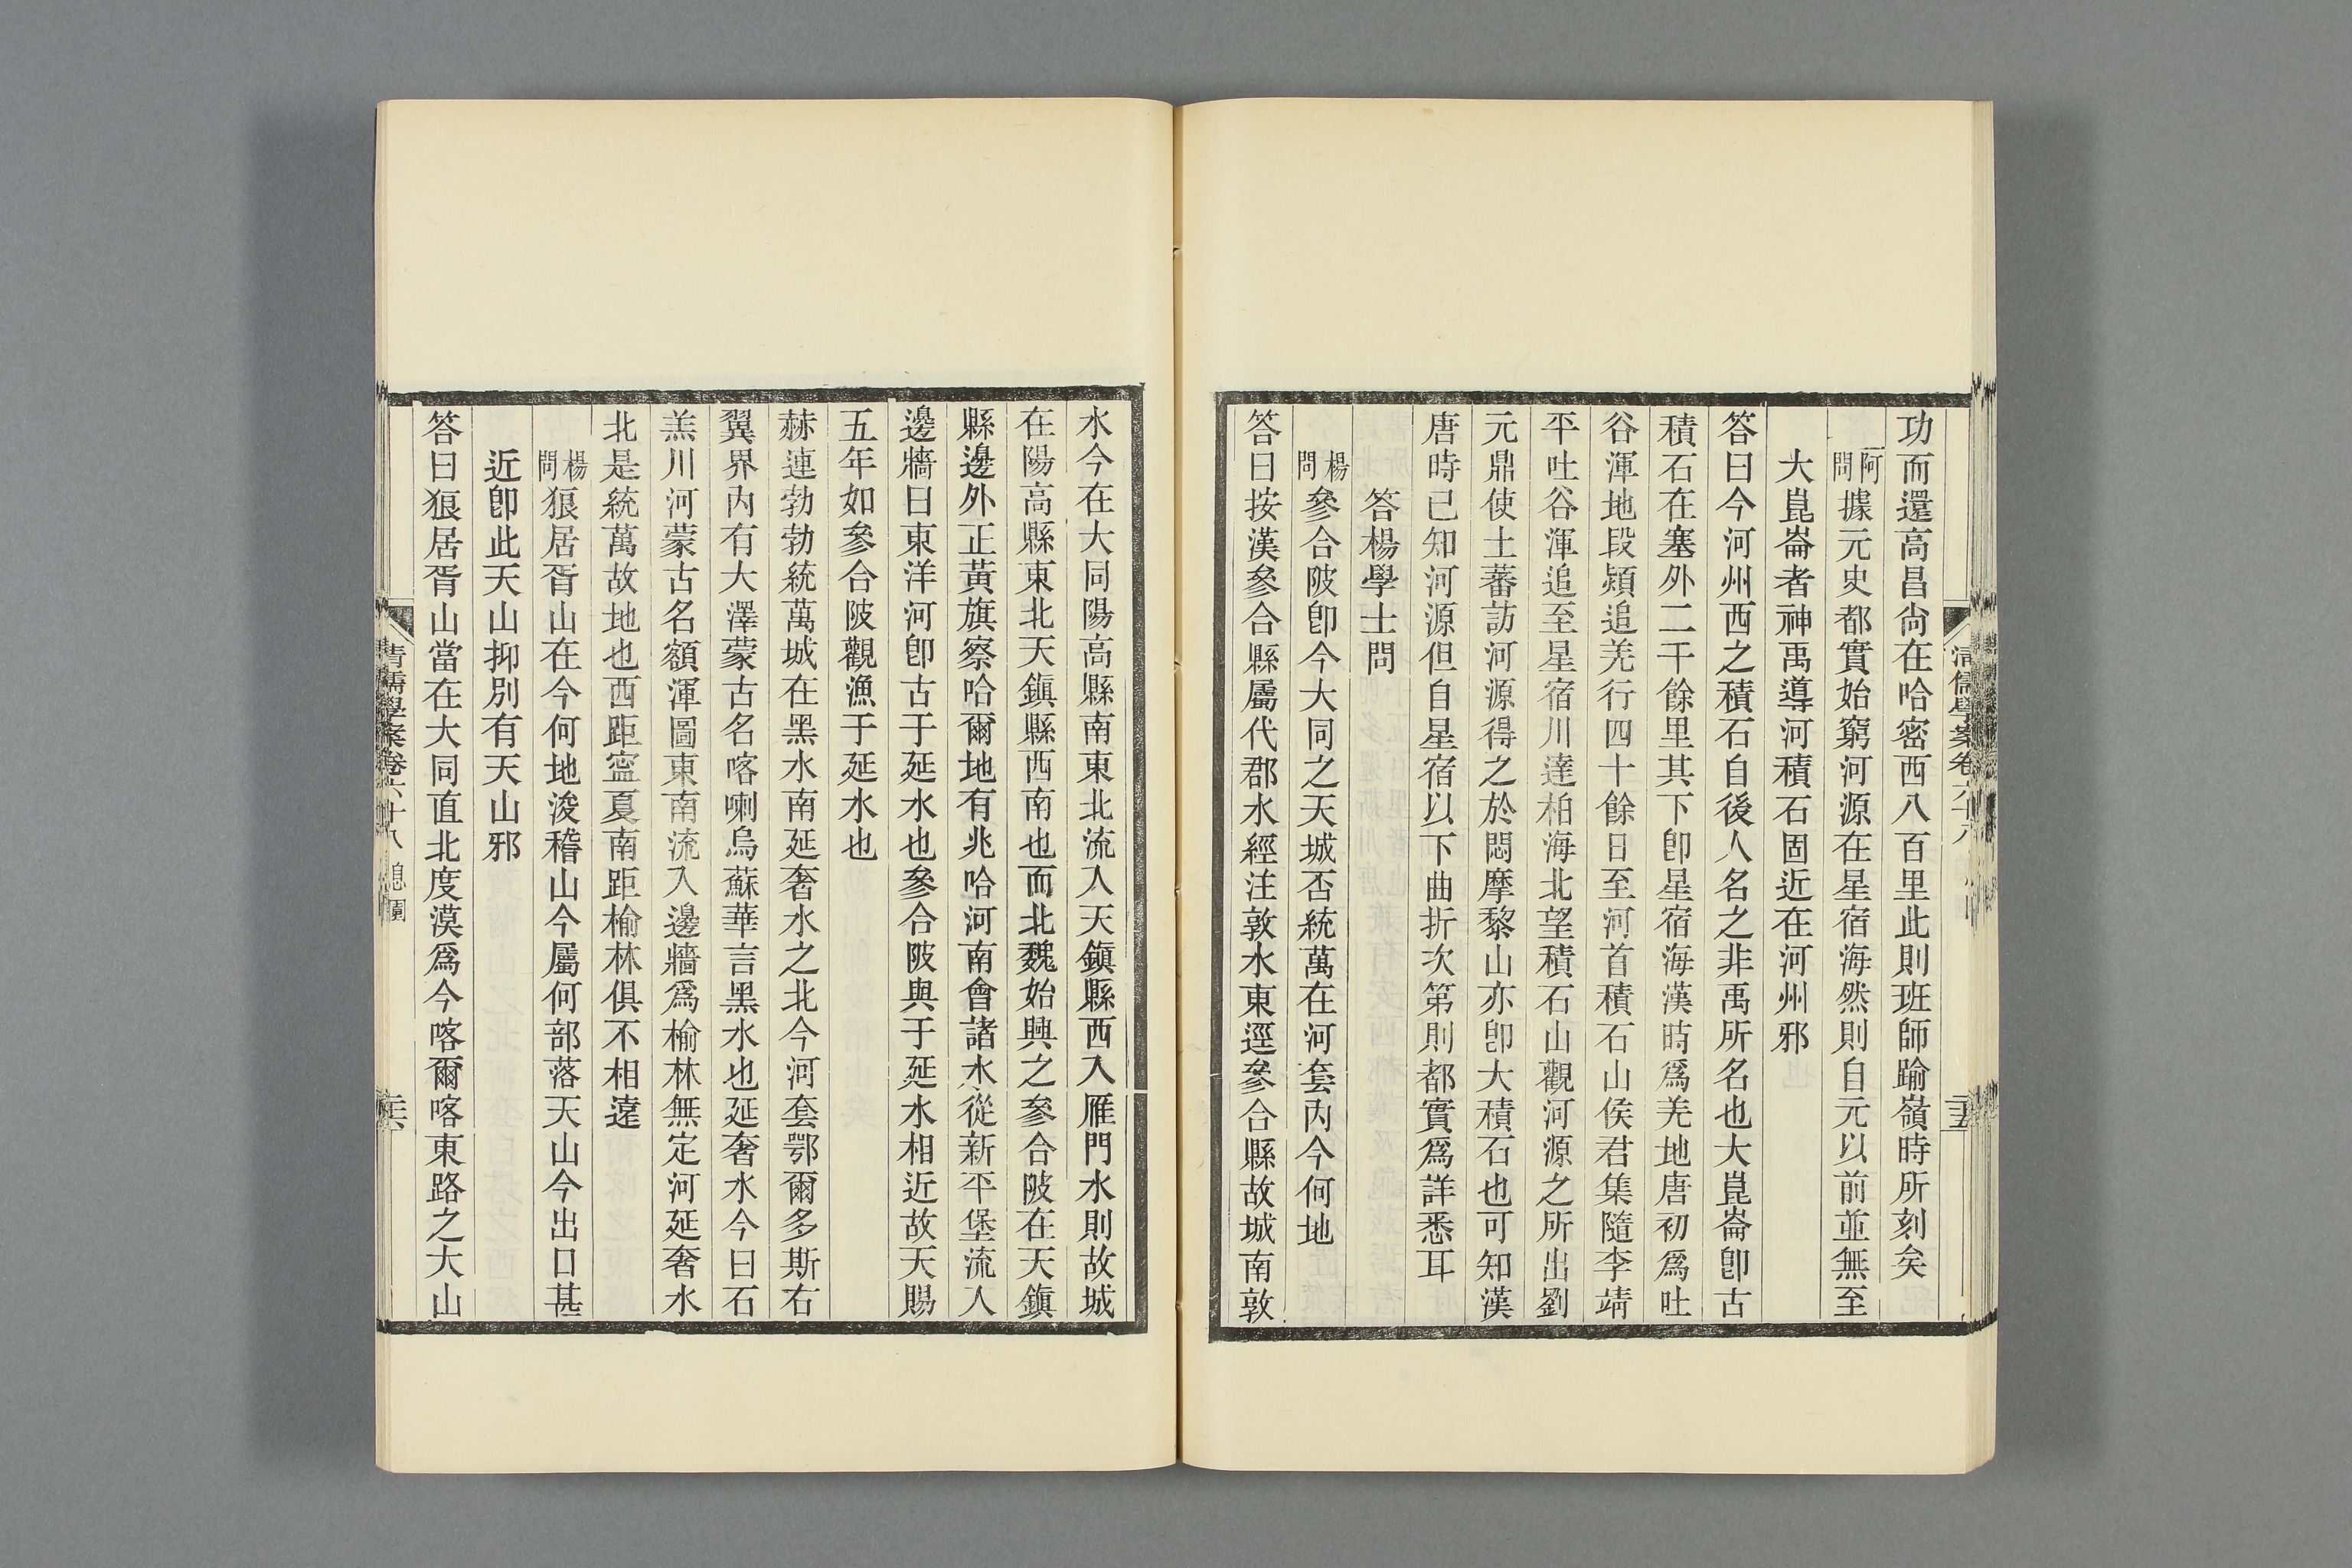 功而還高昌尙在哈密西八百里此則班師踰嶺時所刻矣
阿問據元史都實始窮河源在星宿海然則自元以前並無至
大崑崙者神禹導河積石固近在河州邪
答曰今河州西之積石自後人名之非禹所名也大崑崙卽古
積石在塞外二千餘里其下卽星宿海漢時爲羌地唐初爲吐
谷渾地段熲追羌行四十餘日至河首積石山侯君集隨李靖
平吐谷渾追至星宿川達柏海北望積石山觀河源之所出劉
元鼎使土蕃訪河源得之於悶摩黎山亦卽大積石也可知漢
唐時已知河源但自星宿以下曲折次第則都實爲詳悉耳
答楊學士問
楊問參合陂卽今大同之天城否統萬在河套內今何地
答曰按漢參合縣屬代郡水經注敦水東逕參合縣故城南敦
清儒學案卷六十八
二十五
水今在大同陽高縣南東北流入天鎭縣西入雁門水則故城
在陽高縣東北天鎭縣西南也而北魏始興之參合陂在天鎭
縣邊外正黃旗察哈爾地有兆哈河南會諸水從新平堡流入
邊牆曰東洋河卽古于延水也參合陂與于延水相近故天賜
五年如參合陂觀漁于延水也
赫連勃勃統萬城在黑水南延奢水之北今河套鄂爾多斯右
翼界內有大澤蒙古名喀喇烏蘇華言黑水也延奢水今曰石
羔川河蒙古名額渾圖東南流入邊牆爲榆林無定河延奢水
北是統萬故地也西距寍夏南距榆林俱不相遠
楊問狼居胥山在今何地浚稽山今屬何部落天山今出口甚
近卽此天山抑別有天山邪
答曰狼居胥山當在大同直北度漠爲今喀爾喀東路之大山
清儒學案卷六十八 息園
二十六